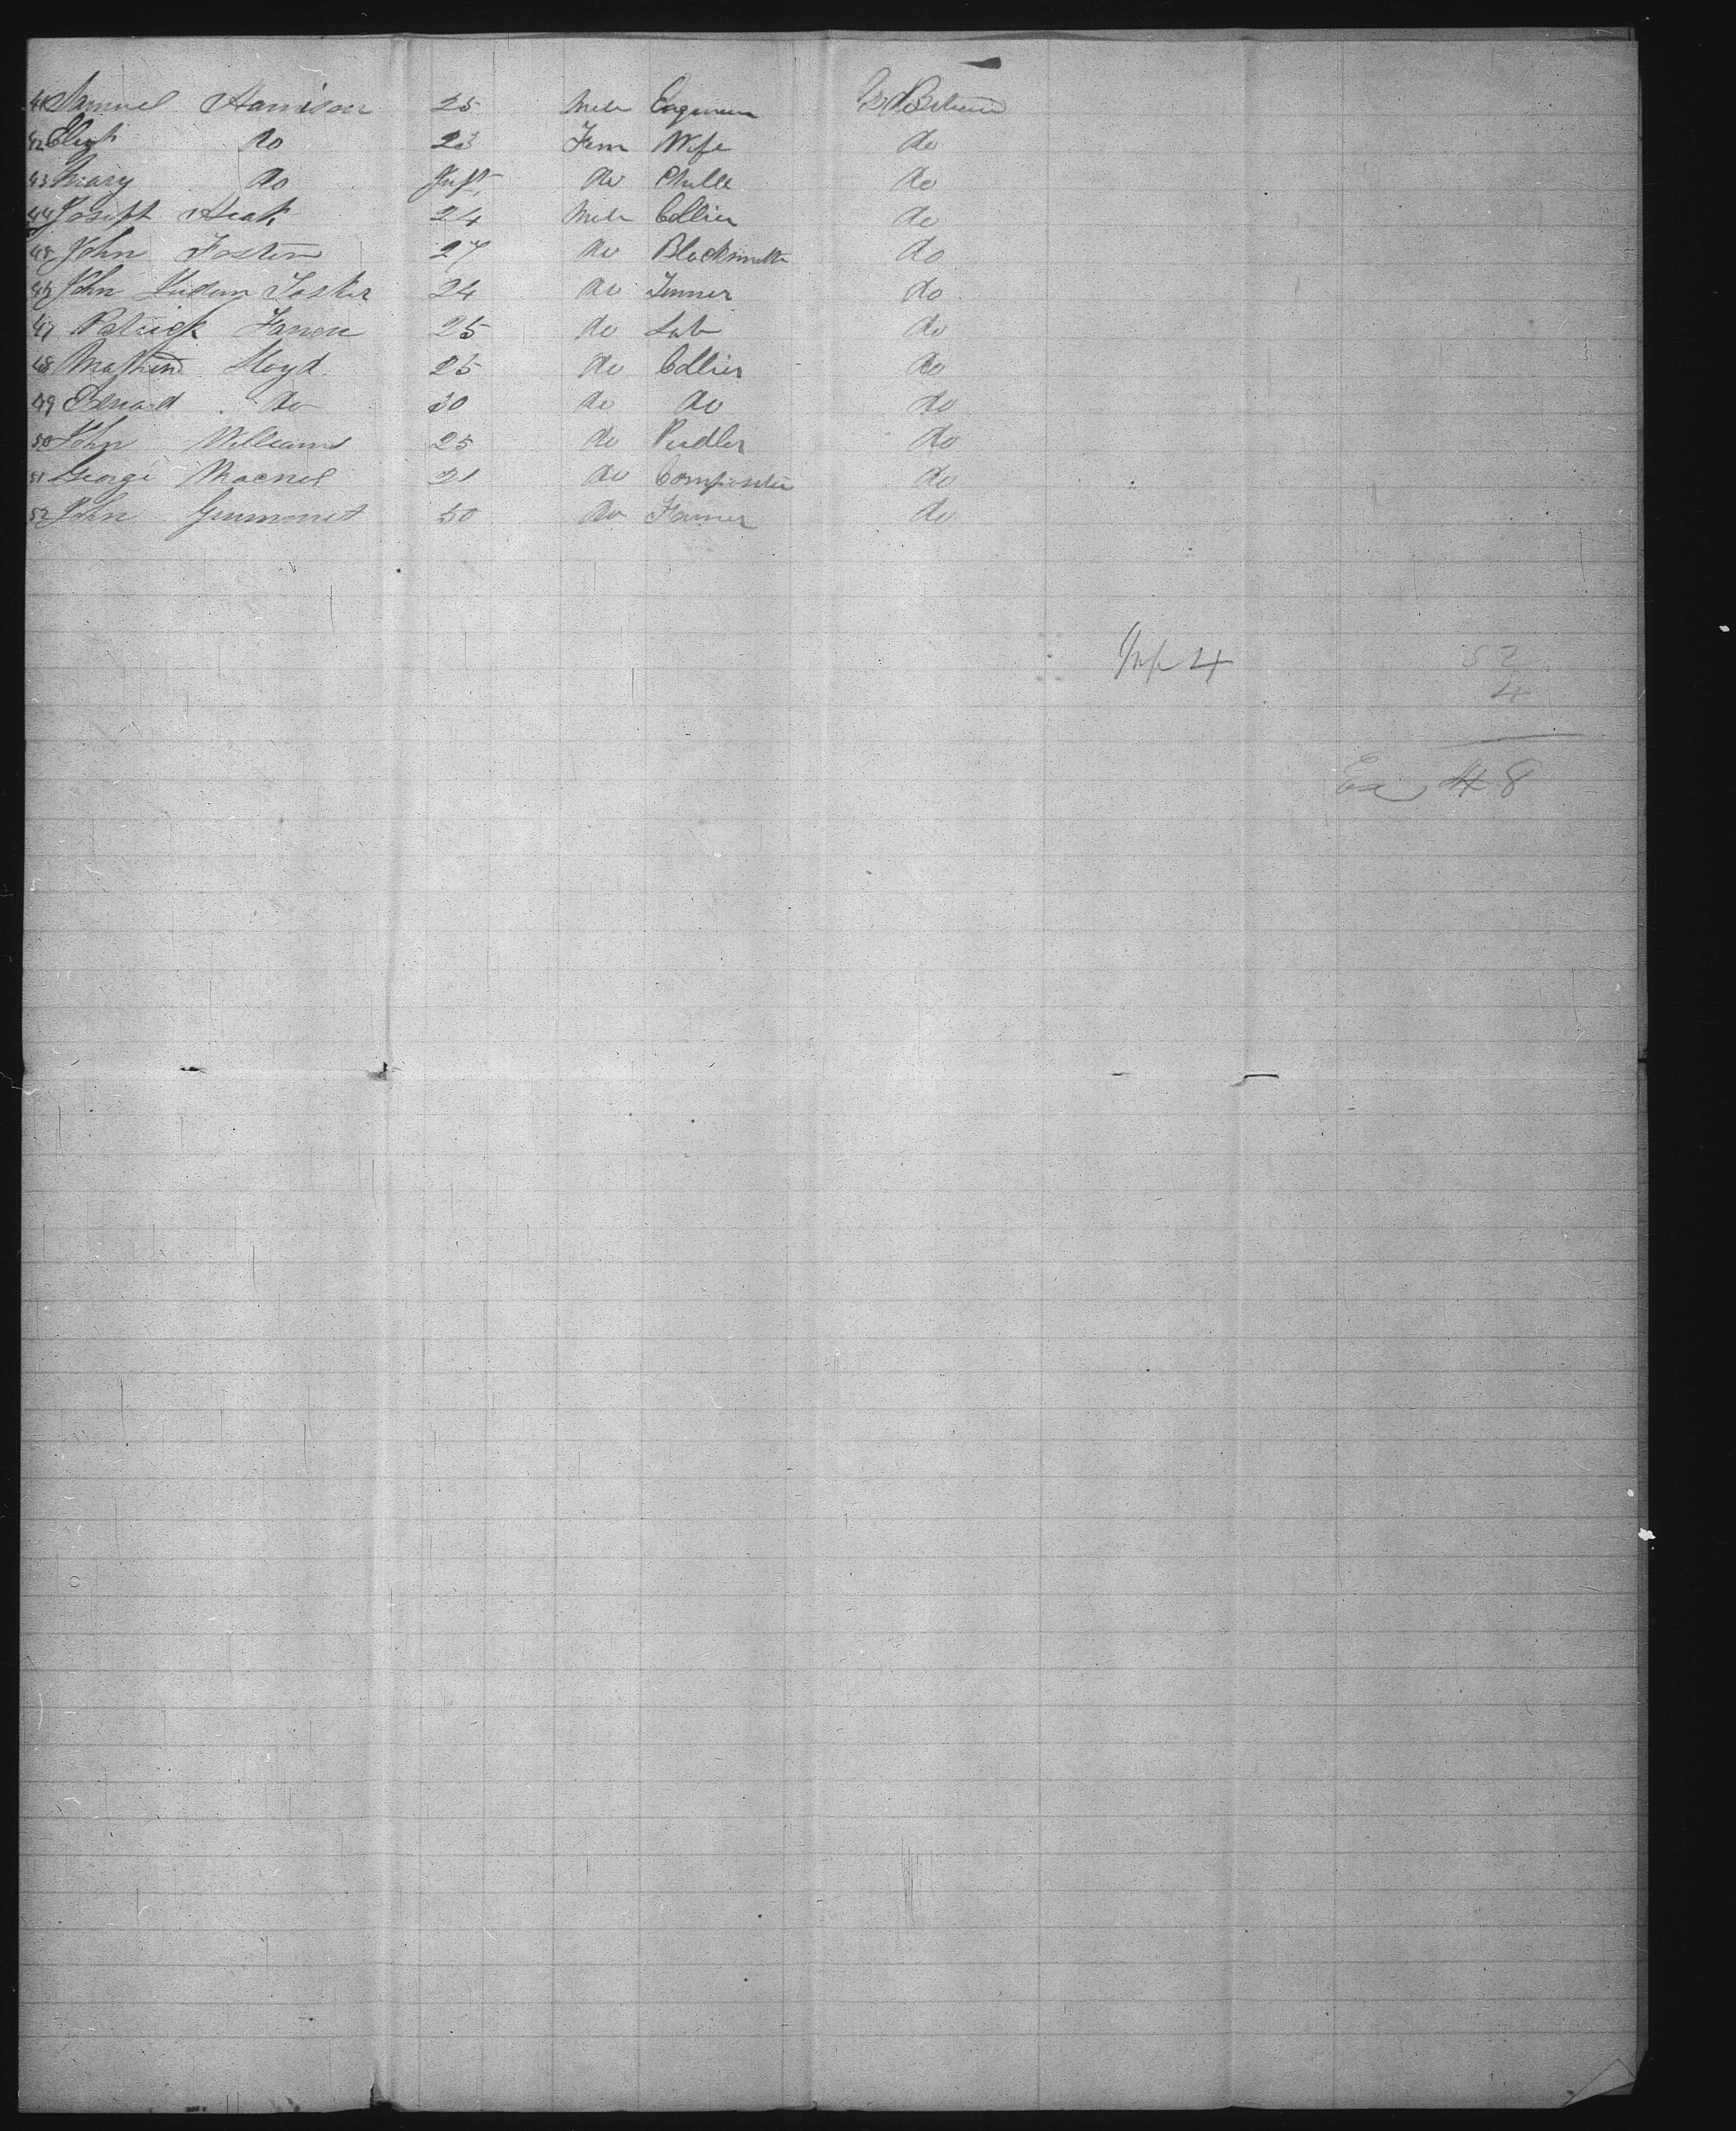 41 Samuel Harrison 25 Male Engineer Gt Britain
42 Eliza do 23 Fem Wife do
43 Mary do Inft do Child do
44 Joseph Heak 24 Male Collier do
45 John Foster 27 do Blacksmith do
46 John Foster 24 do do
47 Patrick 25 do Lab do
48 Lloyd 25 do Collier do
49 Edward do 30 do do do
50 John Williams 25 do Pudler do
51 George 21 do do
52 John 50 do Farmer do
Inf 4 52
4
Ex 48